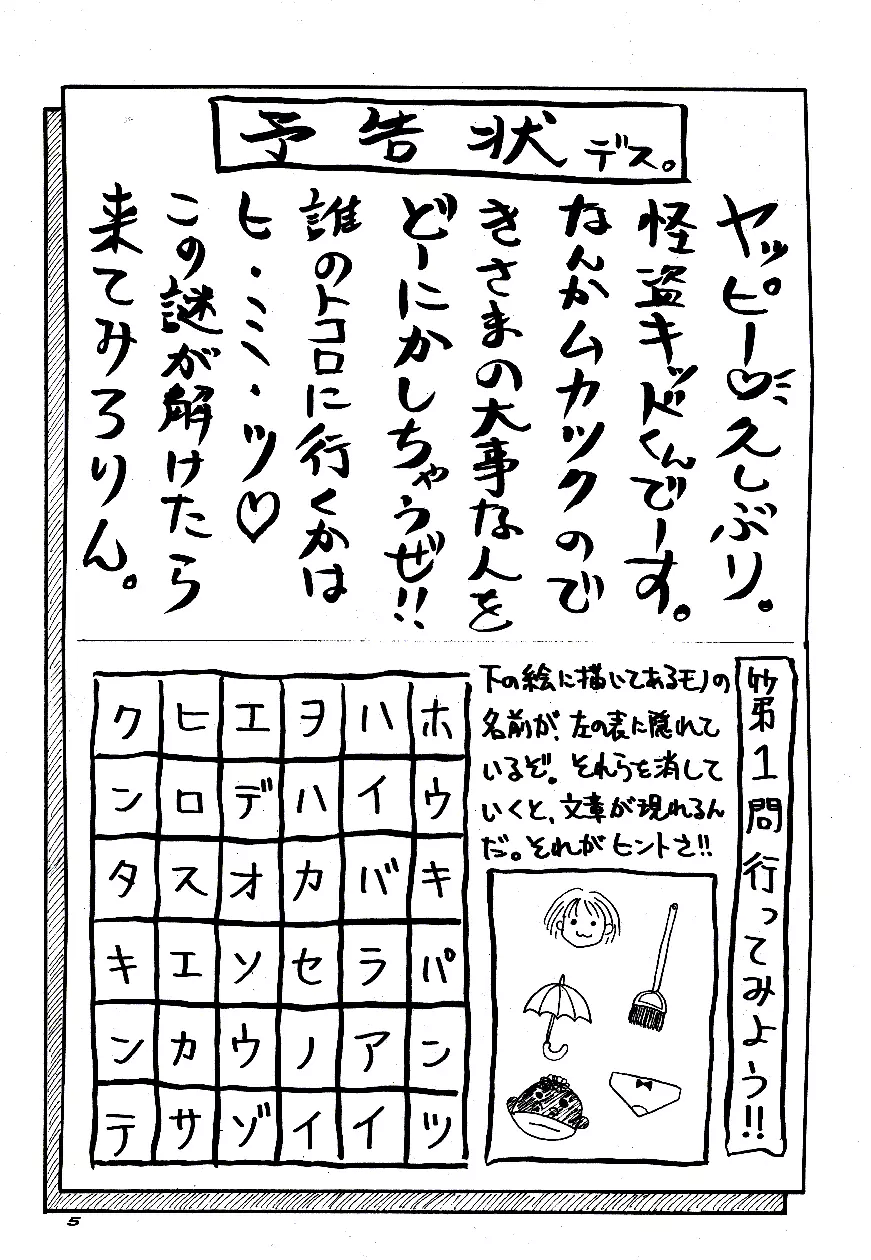 予告状デス。
ヤッピー♡久しぶり。
怪盗キッドくんでーす。
なんかムカツクので
きさまの大事な人を
どーにかしちゃうぜ!!
誰のトコロに行くかは
ヒ・ミ・ツ♡
この謎が解けたら
来てみろりん。
第1問行ってみよう!!
下の絵に描いてあるモノの
名前が、左の表に隠れて
いるぞ。それらを消して
いくと、文章が現れるん
だ。それがヒントさ!!
クヒエヲハホ
ンロデハイウ
タスオカバキ
キエソセラパ
ンカウノアン
テサゾイイツ
5